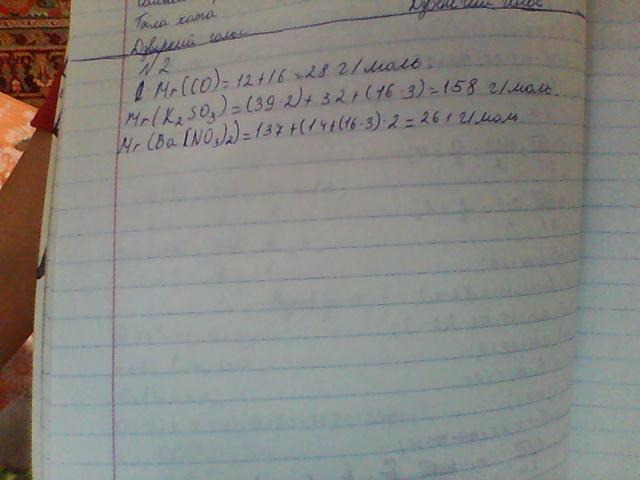 Тила хата
Дзвінкий голос
N2
Mr(CO)=12+16=28 г/моль.
Mr(K2SO3)=(39·2)+32+(16·3)=158 г/моль.
Mr(Ba(NO3)2)=137+(14+(16·3)·2=261 г/моль